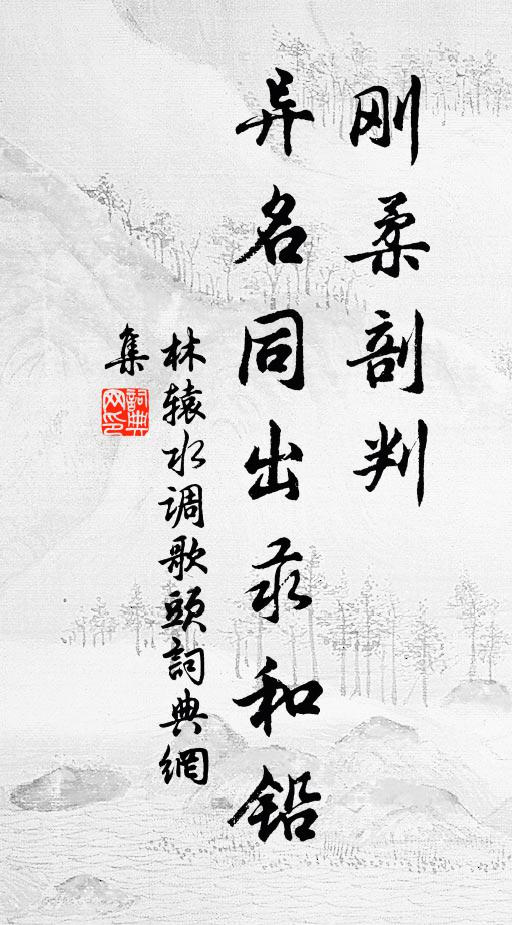 刚柔剖判
异名同出汞和铅
林辕水调歌頭詞典網
集
詞典
网印